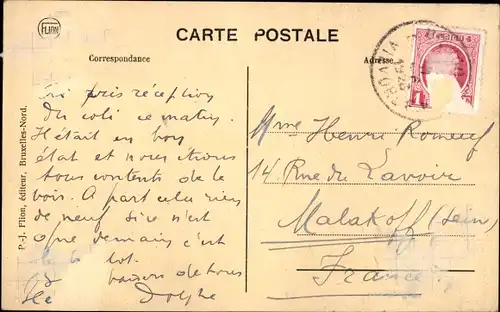 FLION
CARTE POSTALE
Correspondance
Adresse
P.-J. Flion, éditeur, Bruxelles-Nord.
1
pris reception
du coli ce matin.
Il était en bon
état et nous étions
tous contents de le
A part cela rien
de neuf n'est
que demain c'est
de tous
Dolphe
Mme Henri Romeuf
14 Rue du Lavoir
Malakoff (Sein)
France.